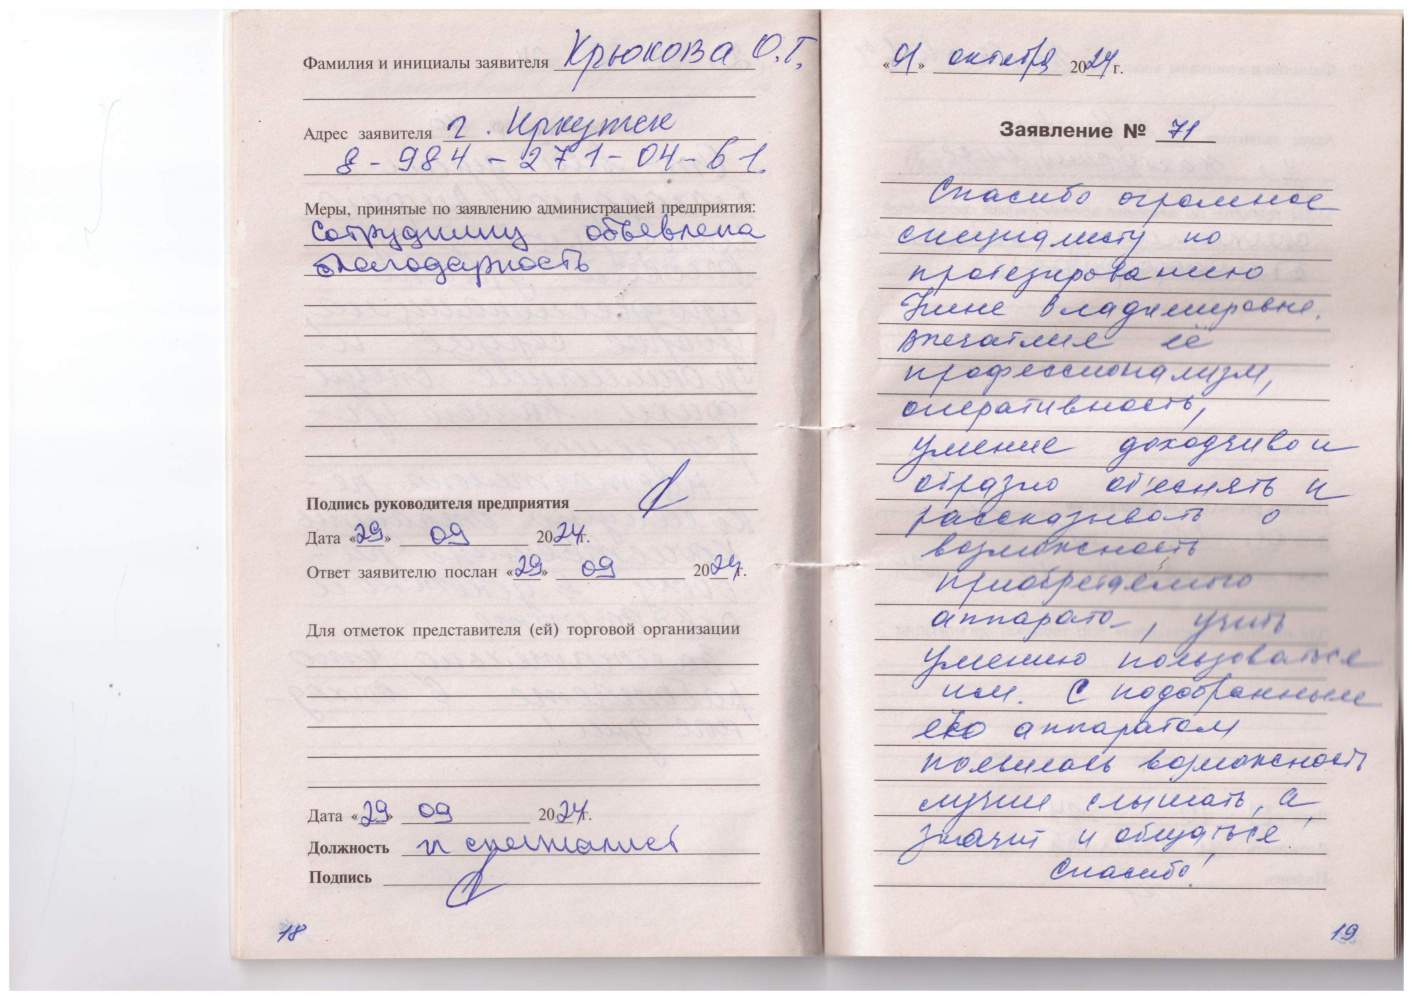 Фамилия и инициалы заявителя Крюкова О.Г,
Адрес заявителя г. Иркутск
8-984-271-04-61.
Меры, принятые по заявлению администрацией предприятия:
Сотруднику объявлена
благодарность
Подпись руководителя предприятия
Дата «29» 09 2024 г.
Ответ заявителю послан «29» 09 2024 г.
Для отметок представителя (ей) торговой организации
Дата «29 09 2024 г.
Должность специалист
Подпись
18
« » октября 2024 г.
Заявление № 71
Спасибо огромное
специалисту по
протезированию
Нине Владимировне.
Впечатлил её
профессионализм,
оперативность,
умение доходчиво и
образно объеснять и
рассказывать о
возможность
приобретаемого
аппарата, учить
умению пользоваться
им. С подобранным
ею аппаратом
появилась возможность
лучше слышать, а
значит и общаться!
Спасибо!
19